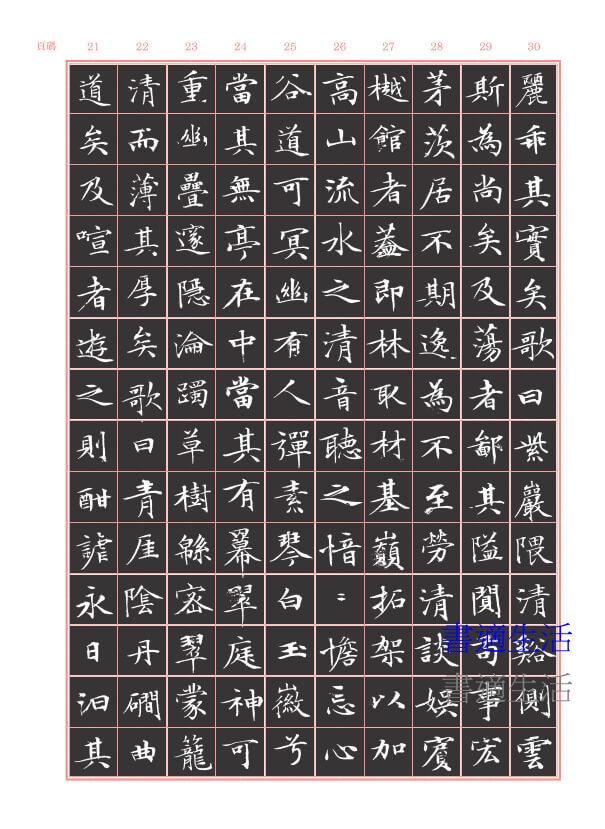 頁碼 21 22 23 24 25 26 27 28 29 30
道矣及喧者遊之則酣謔永日汩其
清而薄其厚矣歌曰青崖陰丹磵曲
重幽疊邃隱淪躅草樹緜密翠蒙籠
當其無亭在中當其有羃翠庭神可
谷道可冥幽有人彈素琴白玉徽兮
高山流水之清音聽之愔々憺忘心
樾館者蓋即林取材基巔拓架以加
茅茨居不期逸為不至勞清談娛賓
斯為尚矣及蕩者鄙其隘閴苟事宏
麗乖其實矣歌曰紫巖隈清谿側雲
書適生活
書適生活